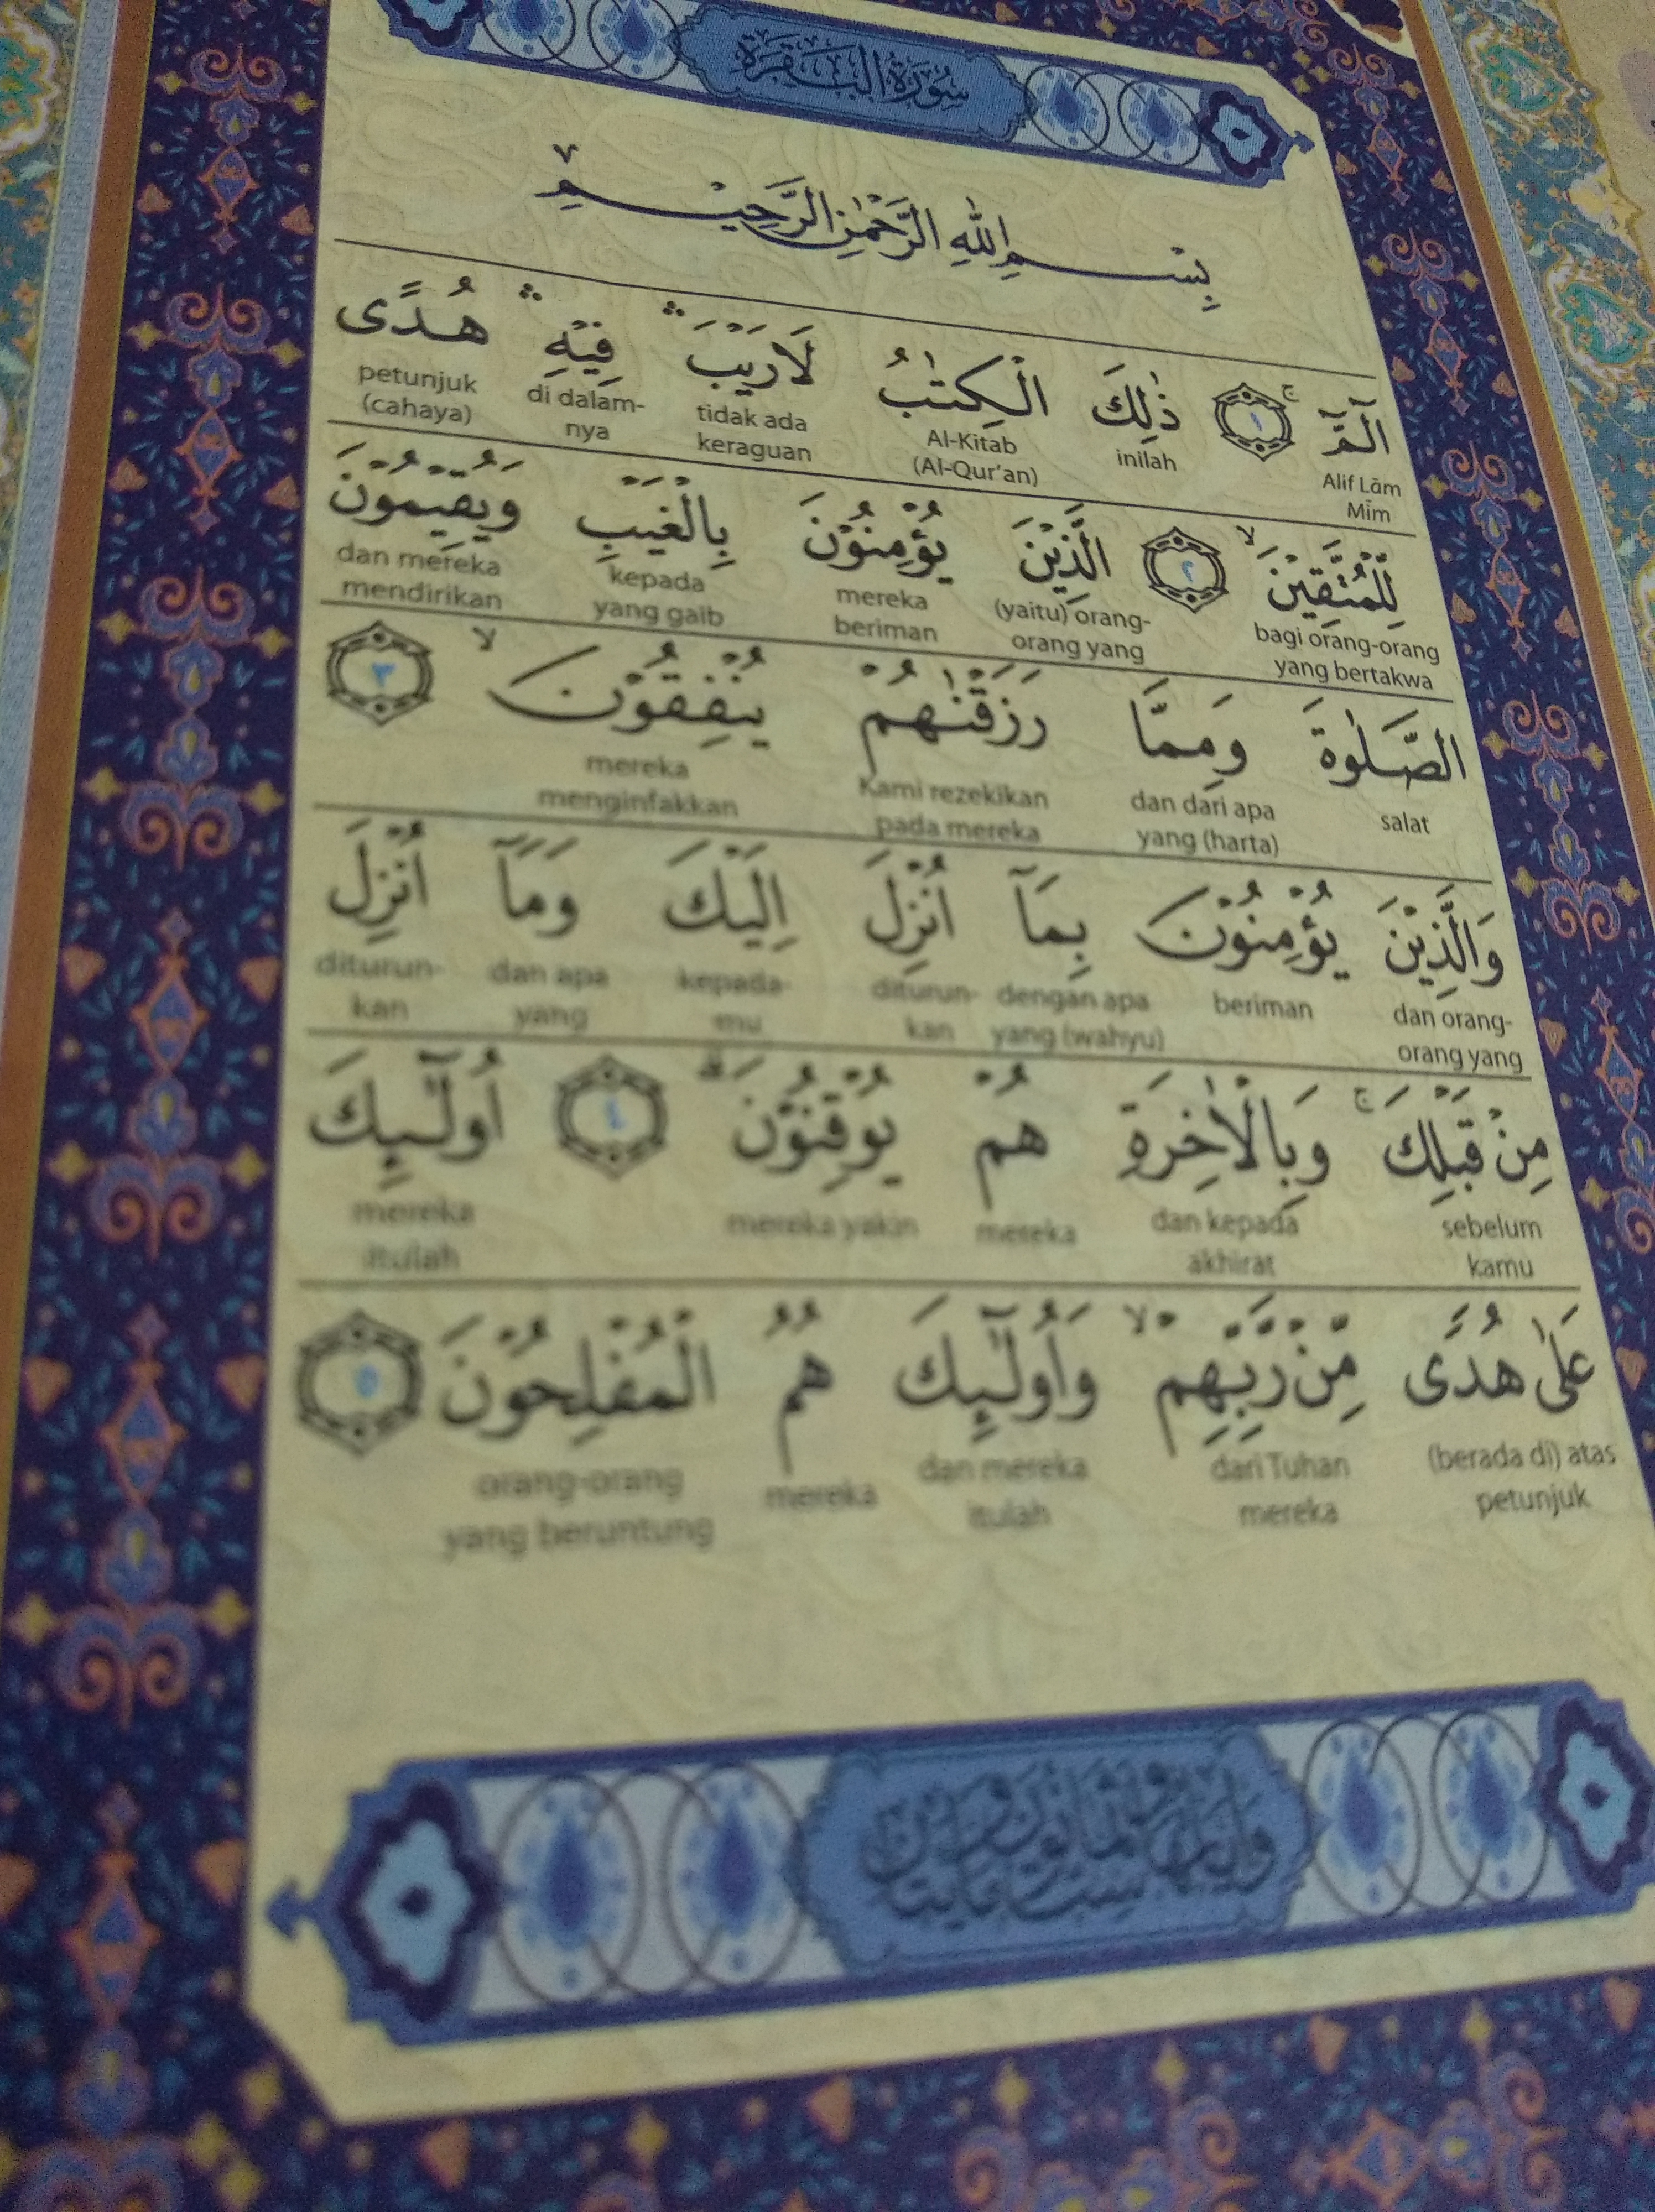 سُوْرَةُ الْبَقَرَةِ
بِسْمِ اللّٰهِ الرَّحْمٰنِ الرَّحِيْمِ
الۤمّۤ ۚ ١ ذٰلِكَ الْكِتٰبُ لَا رَيْبَ ۛ فِيْهِ ۛ هُدًى
Alif Lām Mīm inilah Al-Kitab (Al-Qur'an) tidak ada keraguan di dalam-nya petunjuk (cahaya)
لِّلْمُتَّقِيْنَ ۙ ٢ الَّذِيْنَ يُؤْمِنُوْنَ بِالْغَيْبِ وَيُقِيْمُوْنَ
bagi orang-orang yang bertakwa (yaitu) orang-orang yang mereka beriman kepada yang gaib dan mereka mendirikan
الصَّلٰوةَ وَمِمَّا رَزَقْنٰهُمْ يُنْفِقُوْنَ ۙ ٣
salat dan dari apa yang (harta) Kami rezekikan pada mereka mereka menginfakkan
وَالَّذِيْنَ يُؤْمِنُوْنَ بِمَآ اُنْزِلَ اِلَيْكَ وَمَآ اُنْزِلَ
dan orang-orang yang beriman dengan apa yang (wahyu) diturun-kan kepada-mu dan apa yang diturun-kan
مِنْ قَبْلِكَ ۚ وَبِالْاٰخِرَةِ هُمْ يُوْقِنُوْنَ ۗ ٤ اُولٰۤىِٕكَ
sebelum kamu dan kepada akhirat mereka mereka yakin mereka itulah
عَلٰى هُدًى مِّنْ رَّبِّهِمْ ۙ وَاُولٰۤىِٕكَ هُمُ الْمُفْلِحُوْنَ ٥
(berada di) atas petunjuk dari Tuhan mereka dan mereka itulah mereka orang-orang yang beruntung